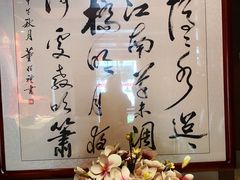 隱隱水迢
江南草未凋
橋明月夜
何處教吹簫
秋月 董
書